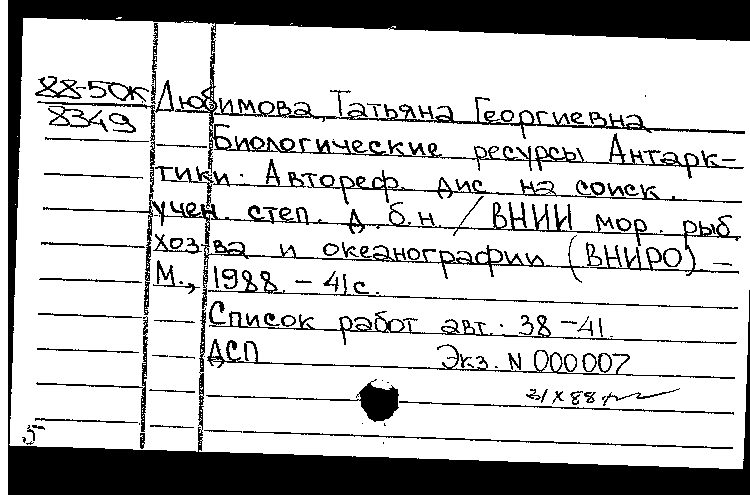 88-50К
8349
Любимова, Татьяна Георгиевна
Биологические ресурсы Антарк-
тики. Автореф. дис. на соиск.
учен. степ. д.б.н. / ВНИИ мор. рыб.
хоз-ва и океанографии (ВНИРО) -
М., 1988. - 41с.
Список работ авт.: 38-41
ДСП Экз. N 000007
31 X 88
5